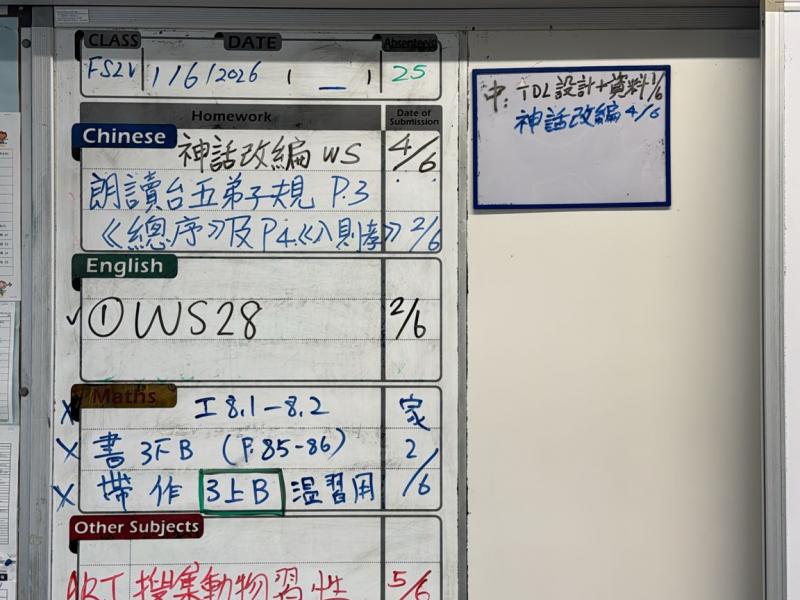 CLASS DATE Absentee(s)
1/6/2026 ( _ ) 25
Homework Date of Submission
Chinese
神話改編 WS 4/6
朗讀台五弟子規 P.3
《總序》及P4.《入則孝》 2/6
English
✓ ① WS28 2/6
Maths
X 工 8.1-8.2 家
X 書 3下B (P.85-86) 2/6
X 帶 作 3上B 溫習用
Other Subjects
ART 搜集動物習性 5/6
中: TDL設計+資料 1/6
神話改編 4/6